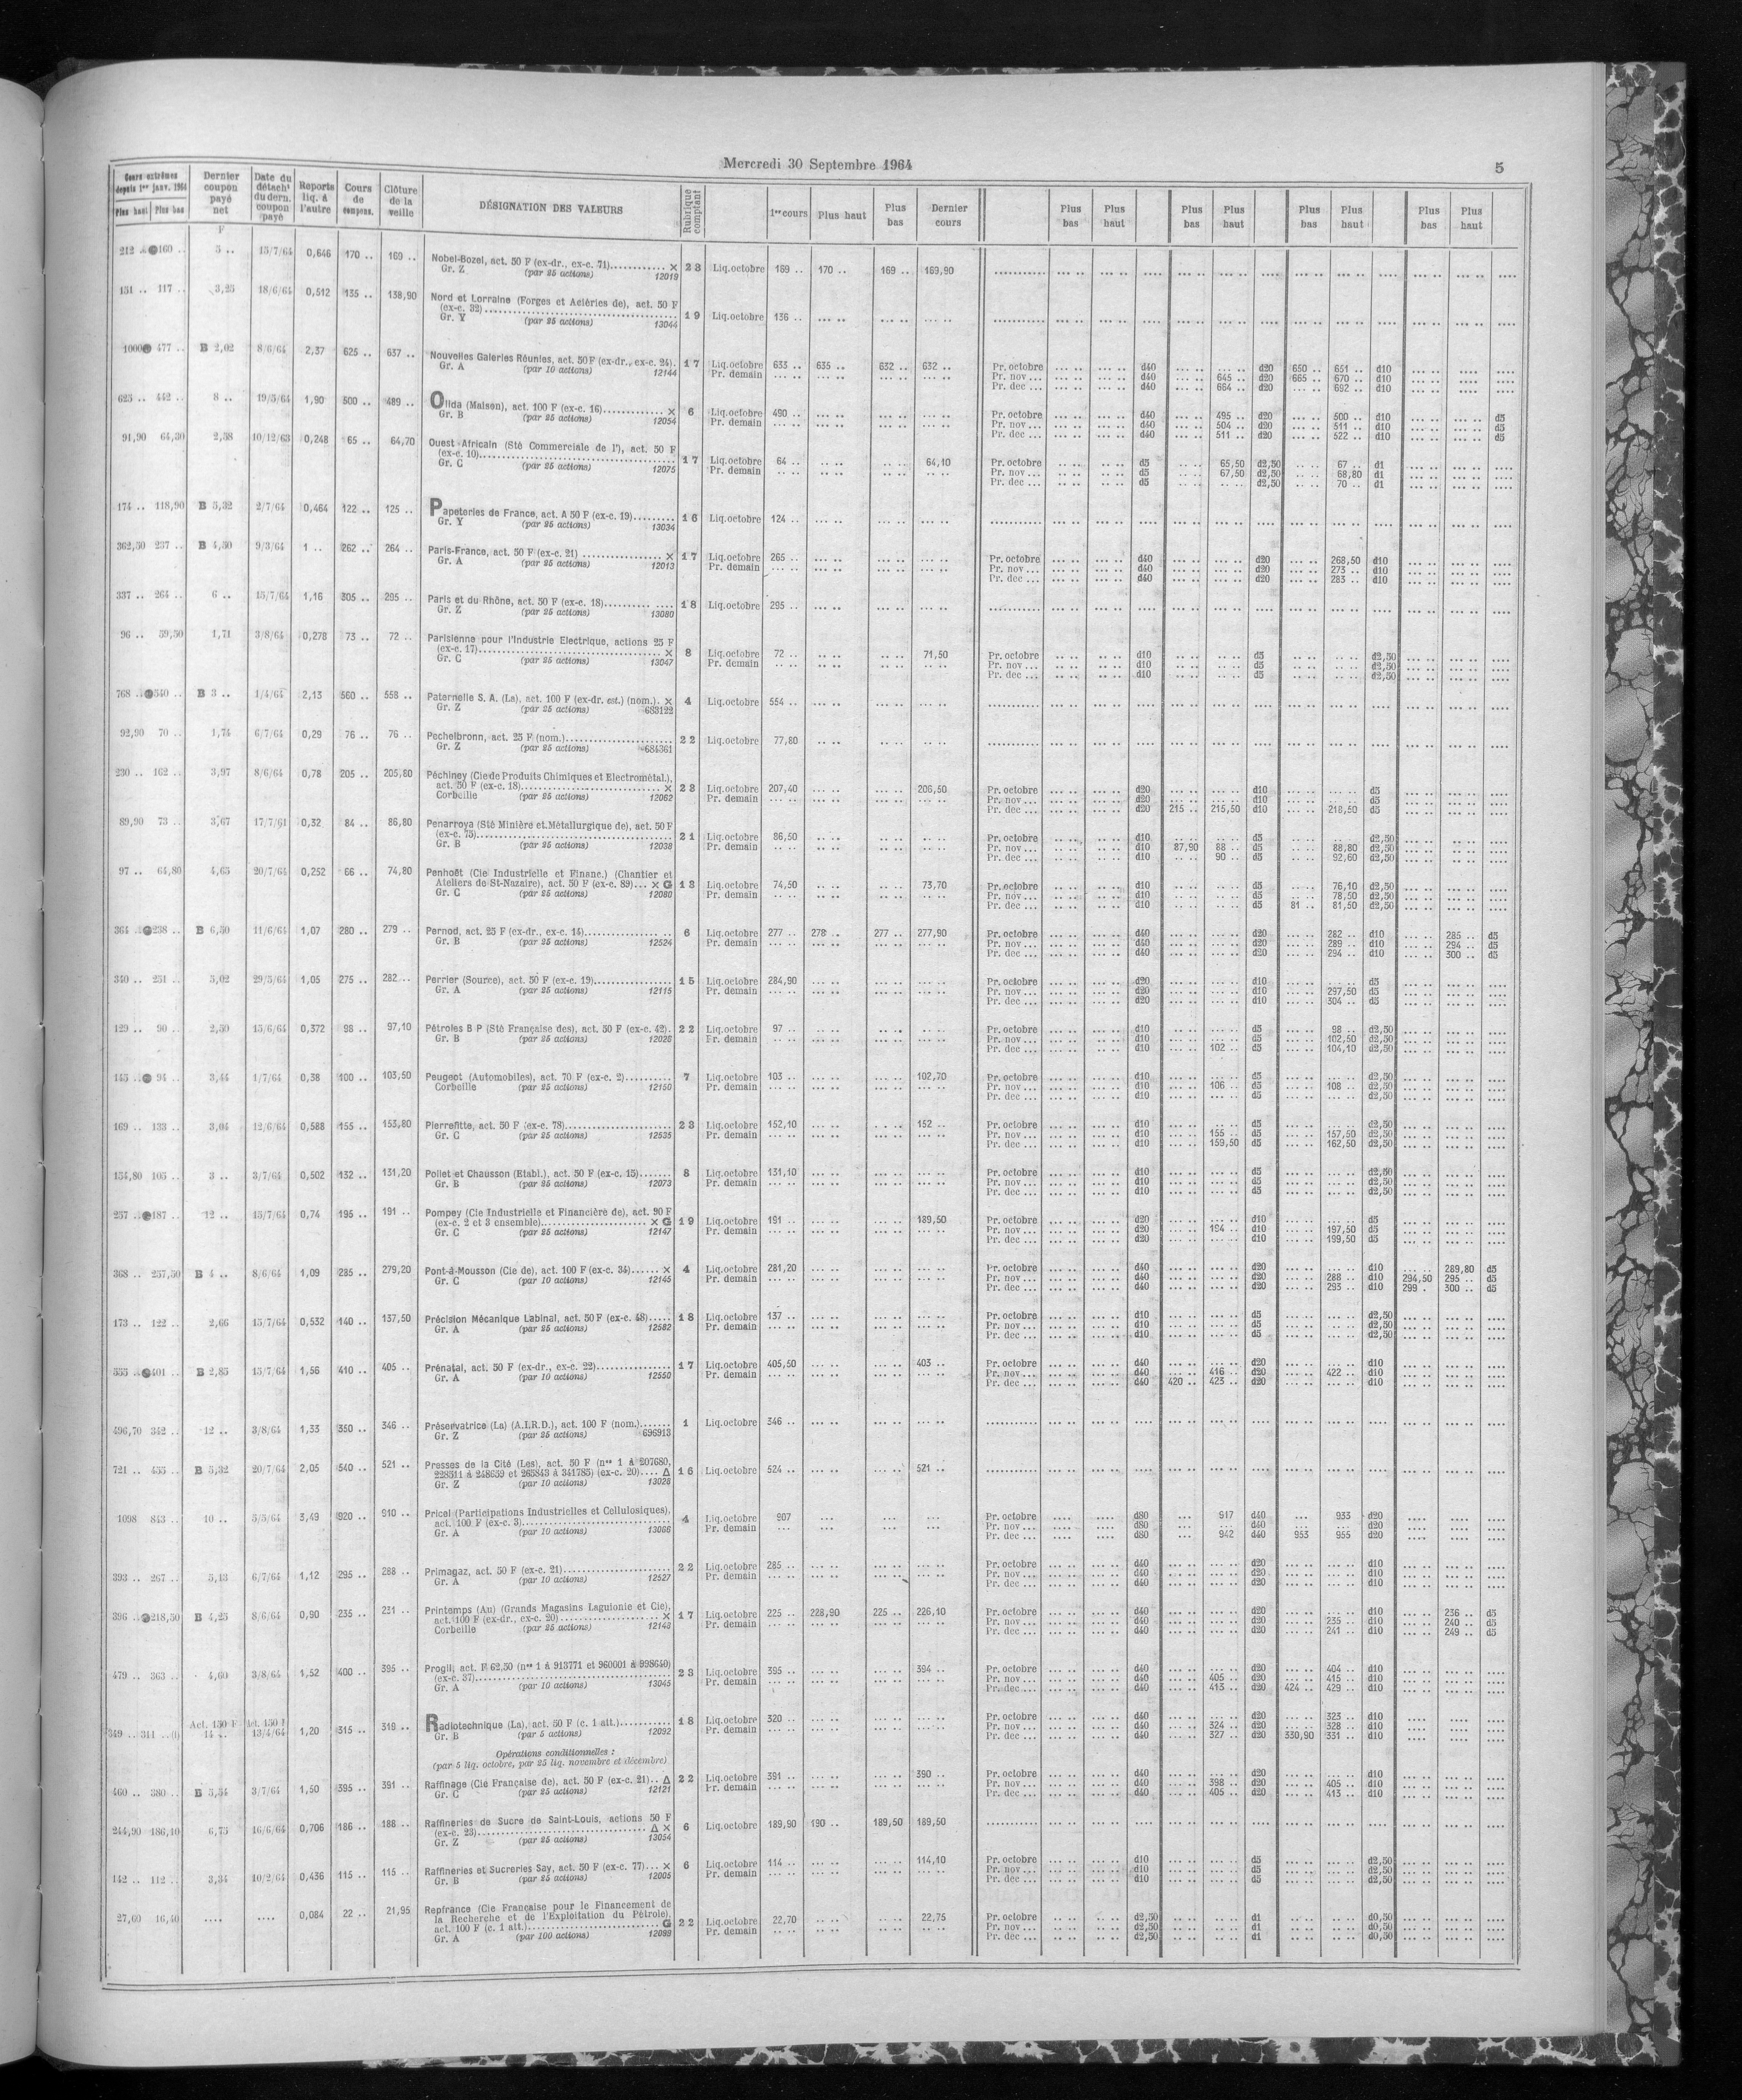 Mercredi 30 Septembre 1964
5
Cours extrêmes depuis 1er janv. 1964 Plus haut Plus bas Dernier coupon payé net Date du détacht du dern. coupon payé Reports liq. à l'autre Cours de compens. Clôture de la veille DÉSIGNATION DES VALEURS Rubrique comptant 1er cours Plus haut Plus bas Dernier cours Plus bas Plus haut Plus bas Plus haut Plus bas Plus haut Plus bas Plus haut
F
212 .. 160 .. 5 .. 15/7/64 0,646 170 .. 169 .. Nobel-Bozel, act. 50 F (ex-dr., ex-c. 71) × 23 Liq.octobre 169 .. 170 .. 169 .. 169,90
Gr. Z (par 25 actions) 12019
151 .. 117 .. 3,25 18/6/64 0,512 135 .. 138,90 Nord et Lorraine (Forges et Aciéries de), act. 50 F
(ex-c. 32) 19 Liq.octobre 136 ..
Gr. Y (par 25 actions) 13044
1000 477 .. B 2,02 8/6/64 2,37 625 .. 637 .. Nouvelles Galeries Réunies, act. 50 F (ex-dr., ex-c. 24). 17 Liq.octobre 633 .. 635 .. 632 .. 632 .. Pr. octobre d40 d20 650 .. 651 .. d10
Gr. A (par 10 actions) 12144 Pr. demain Pr. nov... d40 645 .. d20 665 .. 670 .. d10
Pr. dec ... d40 664 .. d20 692 .. d10
625 .. 442 .. 8 .. 19/5/64 1,90 500 .. 489 .. Olida (Maison), act. 100 F (ex-c. 16) × 6 Liq.octobre 490 .. Pr. octobre d40 495 .. d20 500 .. d10 d5
Gr. B (par 25 actions) 12054 Pr. demain Pr. nov... d40 504 .. d20 511 .. d10 d5
Pr. dec ... d40 511 .. d20 522 .. d10 d5
91,90 64,30 2,58 10/12/63 0,248 65 .. 64,70 Ouest-Africain (Sté Commerciale de l'), act. 50 F
(ex-c. 10) 17 Liq.octobre 64 .. 64,10 Pr. octobre d5 65,50 d2,50 67 .. d1
Gr. C (par 25 actions) 12075 Pr. demain Pr. nov... d5 67,50 d2,50 68,80 d1
Pr. dec ... d5 d2,50 70 .. d1
174 .. 118,90 B 5,32 2/7/64 0,464 122 .. 125 .. Papeteries de France, act. A 50 F (ex-c. 19) 16 Liq.octobre 124 ..
Gr. Y (par 25 actions) 13034
362,50 237 .. B 4,50 9/3/64 1 .. 262 .. 264 .. Paris-France, act. 50 F (ex-c. 21) × 17 Liq.octobre 265 .. Pr. octobre d40 d20 268,50 d10
Gr. A (par 25 actions) 12013 Pr. demain Pr. nov... d40 d20 273 .. d10
Pr. dec ... d40 d20 283 .. d10
337 .. 264 .. 6 .. 15/7/64 1,16 305 .. 295 .. Paris et du Rhône, act. 50 F (ex-c. 18) 18 Liq.octobre 295 ..
Gr. Z (par 25 actions) 13080
96 .. 59,50 1,71 3/8/64 0,278 73 .. 72 .. Parisienne pour l'Industrie Electrique, actions 25 F
(ex-c. 17) × 8 Liq.octobre 72 .. 71,50 Pr. octobre d10 d5 d2,50
Gr. C (par 25 actions) 13047 Pr. demain Pr. nov... d10 d5 d2,50
Pr. dec ... d10 d5 d2,50
768 .. 540 .. B 3 .. 1/4/64 2,13 560 .. 558 .. Paternelle S. A. (La), act. 100 F (ex-dr. est.) (nom.). × 4 Liq.octobre 554 ..
Gr. Z (par 25 actions) 683122
92,90 70 .. 1,74 6/7/64 0,29 76 .. 76 .. Pechelbronn, act. 25 F (nom.) 22 Liq.octobre 77,80
Gr. Z (par 25 actions) 684361
230 .. 162 .. 3,97 8/6/64 0,78 205 .. 205,80 Péchiney (Cie de Produits Chimiques et Electrométal.),
act. 50 F (ex-c. 18) × 23 Liq.octobre 207,40 206,50 Pr. octobre d20 d10 d5
Corbeille (par 25 actions) 12062 Pr. demain Pr. nov... d20 d10 d5
Pr. dec ... d20 215 .. 215,50 d10 218,50 d5
89,90 73 .. 3,67 17/7/61 0,32 84 .. 86,80 Penarroya (Sté Minière et Métallurgique de), act. 50 F
(ex-c. 75) 21 Liq.octobre 86,50 Pr. octobre d10 d5 d2,50
Gr. B (par 25 actions) 12038 Pr. demain Pr. nov... d10 87,90 88 .. d5 88,80 d2,50
Pr. dec ... d10 90 .. d5 92,60 d2,50
97 .. 64,80 4,65 20/7/64 0,252 66 .. 74,80 Penhoët (Cie Industrielle et Financ.) (Chantier et
Ateliers de St-Nazaire), act. 50 F (ex-c. 89)... × G 13 Liq.octobre 74,50 73,70 Pr. octobre d10 d5 76,10 d2,50
Gr. C (par 25 actions) 12080 Pr. demain Pr. nov... d10 d5 78,50 d2,50
Pr. dec ... d10 d5 81 .. 81,50 d2,50
364 .. 238 .. B 6,50 11/6/64 1,07 280 .. 279 .. Pernod, act. 25 F (ex-dr., ex-c. 14) 6 Liq.octobre 277 .. 278 .. 277 .. 277,90 Pr. octobre d40 d20 282 .. d10 285 .. d5
Gr. B (par 25 actions) 12524 Pr. demain Pr. nov... d40 d20 289 .. d10 294 .. d5
Pr. dec ... d40 d20 294 .. d10 300 .. d5
340 .. 251 .. 5,02 29/5/64 1,05 275 .. 282 .. Perrier (Source), act. 50 F (ex-c. 19) 15 Liq.octobre 284,90 Pr. octobre d20 d10 d5
Gr. A (par 25 actions) 12115 Pr. demain Pr. nov... d20 d10 297,50 d5
Pr. dec ... d20 d10 304 .. d5
129 .. 90 .. 2,50 15/6/64 0,372 98 .. 97,10 Pétroles B P (Sté Française des), act. 50 F (ex-c. 42). 22 Liq.octobre 97 .. Pr. octobre d10 d5 98 .. d2,50
Gr. B (par 25 actions) 12028 Pr. demain Pr. nov... d10 d5 102,50 d2,50
Pr. dec ... d10 102 .. d5 104,10 d2,50
145 .. 94 .. 3,44 1/7/64 0,38 100 .. 103,50 Peugeot (Automobiles), act. 70 F (ex-c. 2) 7 Liq.octobre 103 .. 102,70 Pr. octobre d10 d5 d2,50
Corbeille (par 25 actions) 12150 Pr. demain Pr. nov... d10 106 .. d5 108 .. d2,50
Pr. dec ... d10 d5 d2,50
169 .. 133 .. 3,04 12/6/64 0,588 155 .. 153,80 Pierrefitte, act. 50 F (ex-c. 78) 23 Liq.octobre 152,10 152 .. Pr. octobre d10 d5 d2,50
Gr. C (par 25 actions) 12535 Pr. demain Pr. nov... d10 155 .. d5 157,50 d2,50
Pr. dec ... d10 159,50 d5 162,50 d2,50
154,80 105 .. 3 .. 3/7/64 0,502 132 .. 131,20 Poliet et Chausson (Etabl.), act. 50 F (ex-c. 15) 8 Liq.octobre 131,10 Pr. octobre d10 d5 d2,50
Gr. B (par 25 actions) 12073 Pr. demain Pr. nov... d10 d5 d2,50
Pr. dec ... d10 d5 d2,50
257 .. 187 .. 12 .. 15/7/64 0,74 195 .. 191 .. Pompey (Cie Industrielle et Financière de), act. 90 F
(ex-c. 2 et 3 ensemble) × G 19 Liq.octobre 191 .. 189,50 Pr. octobre d20 d10 d5
Gr. C (par 25 actions) 12147 Pr. demain Pr. nov... d20 194 .. d10 197,50 d5
Pr. dec ... d20 d10 199,50 d5
368 .. 257,50 B 4 .. 8/6/64 1,09 285 .. 279,20 Pont-à-Mousson (Cie de), act. 100 F (ex-c. 34) × 4 Liq.octobre 281,20 Pr. octobre d40 d20 d10 289,80 d5
Gr. C (par 10 actions) 12145 Pr. demain Pr. nov... d40 d20 288 .. d10 294,50 295 .. d5
Pr. dec ... d40 d20 293 .. d10 299 . 300 .. d5
173 .. 122 .. 2,66 15/7/64 0,532 140 .. 137,50 Précision Mécanique Labinal, act. 50 F (ex-c. 48) 18 Liq.octobre 137 .. Pr. octobre d10 d5 d2,50
Gr. A (par 25 actions) 12582 Pr. demain Pr. nov... d10 d5 d2,50
Pr. dec ... d10 d5 d2,50
555 .. 401 .. B 2,85 15/7/64 1,56 410 .. 405 .. Prénatal, act. 50 F (ex-dr., ex-c. 22) 17 Liq.octobre 405,50 403 .. Pr. octobre d40 d20 d10
Gr. A (par 10 actions) 12550 Pr. demain Pr. nov... d40 416 .. d20 422 .. d10
Pr. dec ... d40 420 .. 423 .. d20 d10
496,70 342 .. 12 .. 3/8/64 1,33 350 .. 346 .. Préservatrice (La) (A.I.R.D.), act. 100 F (nom.) 1 Liq.octobre 346 ..
Gr. Z (par 25 actions) 696913
721 .. 455 .. B 5,32 20/7/64 2,05 540 .. 521 .. Presses de la Cité (Les), act. 50 F (nos 1 à 207680,
228511 à 248639 et 265843 à 341785) (ex-c. 20).... Δ 16 Liq.octobre 524 .. 521 ..
Gr. Z (par 10 actions) 13028
1098 843 .. 10 .. 5/5/64 3,49 920 .. 910 .. Pricel (Participations Industrielles et Cellulosiques),
act. 100 F (ex-c. 3) 4 Liq.octobre 907 Pr. octobre d80 917 d40 933 d20
Gr. A (par 10 actions) 13086 Pr. demain Pr. nov... d80 d40 d20
Pr. dec ... d80 942 d40 953 955 d20
393 .. 267 .. 5,13 6/7/64 1,12 295 .. 288 .. Primagaz, act. 50 F (ex-c. 21) 22 Liq.octobre 285 .. Pr. octobre d40 d20 d10
Gr. A (par 10 actions) 12527 Pr. demain Pr. nov... d40 d20 d10
Pr. dec ... d40 d20 d10
396 .. 218,50 B 4,25 8/6/64 0,90 235 .. 231 .. Printemps (Au) (Grands Magasins Laguionie et Cie),
act. 100 F (ex-dr., ex-c. 20) × 17 Liq.octobre 225 .. 228,90 225 .. 226,10 Pr. octobre d40 d20 d10 236 .. d5
Corbeille (par 25 actions) 12143 Pr. demain Pr. nov... d40 d20 235 .. d10 240 .. d5
Pr. dec ... d40 d20 241 .. d10 249 .. d5
479 .. 363 .. 4,60 3/8/64 1,52 400 .. 395 .. Progil, act. F 62,50 (nos 1 à 913771 et 960001 à 998640)
(ex-c. 37) 23 Liq.octobre 395 .. 394 .. Pr. octobre d40 d20 404 .. d10
Gr. A (par 10 actions) 13045 Pr. demain Pr. nov... d40 405 .. d20 415 .. d10
Pr. dec ... d40 413 .. d20 424 .. 429 .. d10
Act. 150 F Act. 150 F
349 .. 311 .. (1) 14 .. 13/4/64 1,20 315 .. 319 .. Radiotechnique (La), act. 60 F (c. 1 att.) 18 Liq.octobre 320 .. Pr. octobre d40 d20 323 .. d10
Gr. B (par 5 actions) 12092 Pr. demain Pr. nov... d40 324 .. d20 328 .. d10
Pr. dec ... d40 327 .. d20 330,90 331 .. d10
Opérations conditionnelles :
(par 5 liq. octobre, par 25 liq. novembre et décembre)
460 .. 380 .. B 5,54 3/7/64 1,50 395 .. 391 .. Raffinage (Cie Française de), act. 50 F (ex-c. 21).. Δ 22 Liq.octobre 391 .. 390 .. Pr. octobre d40 d20 d10
Gr. C (par 25 actions) 12121 Pr. demain Pr. nov... d40 398 .. d20 405 .. d10
Pr. dec ... d40 405 .. d20 413 .. d10
244,90 186,10 6,75 16/6/64 0,706 186 .. 188 .. Raffineries de Sucre de Saint-Louis, actions 50 F
(ex-c. 23) Δ × 6 Liq.octobre 189,90 190 .. 189,50 189,50
Gr. Z (par 25 actions) 13054
142 .. 112 .. 3,34 10/2/64 0,436 115 .. 115 .. Raffineries et Sucreries Say, act. 50 F (ex-c. 77)... × 6 Liq.octobre 114 .. 114,10 Pr. octobre d10 d5 d2,50
Gr. B (par 25 actions) 12005 Pr. demain Pr. nov... d10 d5 d2,50
Pr. dec ... d10 d5 d2,50
27,60 16,40 .... .... 0,084 22 .. 21,95 Repfrance (Cie Française pour le Financement de
la Recherche et de l'Exploitation du Pétrole),
act. 100 F (c. 1 att.) G 22 Liq.octobre 22,70 22,75 Pr. octobre d2,50 d1 d0,50
Gr. A (par 100 actions) 12099 Pr. demain Pr. nov... d2,50 d1 d0,50
Pr. dec ... d2,50 d1 d0,50